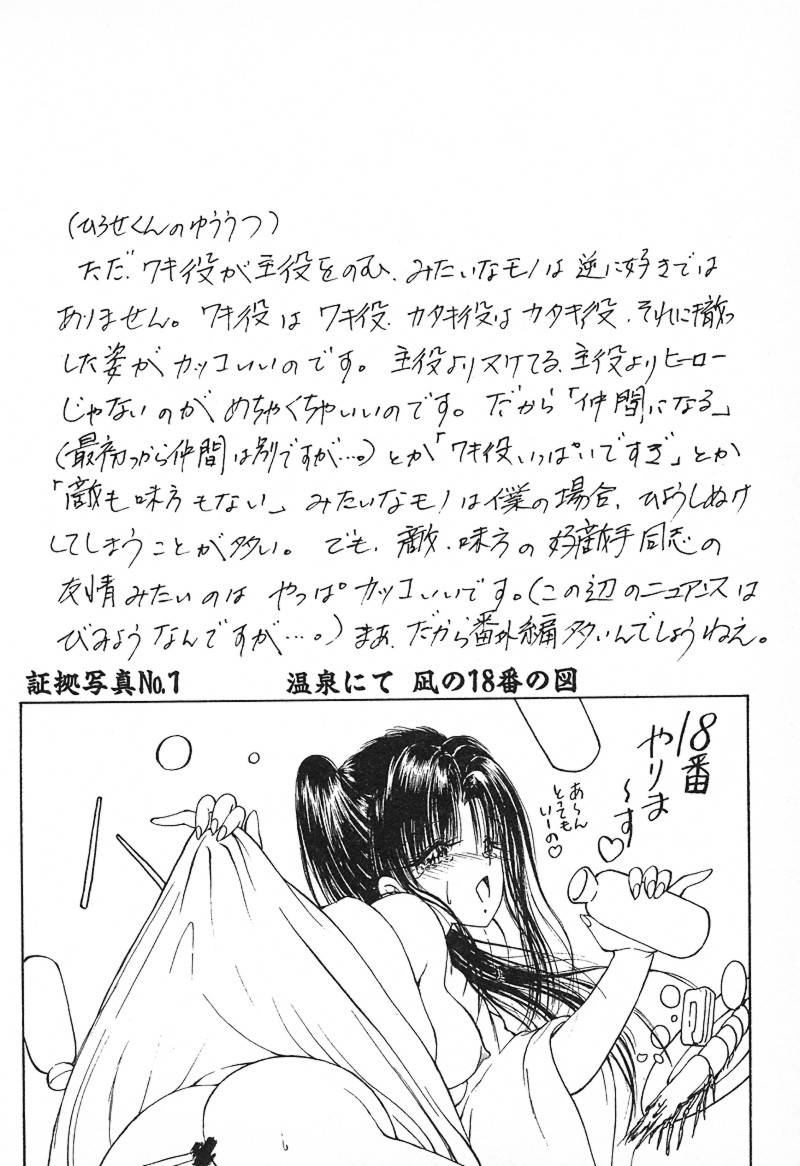 (ひろせくんのゆううつ)
ただ、ワキ役が主役をのむ、みたいなモノは逆に好きでは
ありません。ワキ役はワキ役、カタキ役はカタキ役、それに徹
した姿がカッコいいのです。主役よりヌケてる、主役よりヒーロー
じゃないのがめちゃくちゃいいのです。だから「仲間になる」
(最初っから仲間は別ですが…。)とか「ワキ役いっぱいですぎ」とか
「敵も味方もない」みたいなモノは僕の場合、ひょうしぬけ
してしまうことが多い。でも、敵、味方の好敵手同志の
友情みたいのはやっぱカッコいいです。(この辺のニュアンスは
びみょうなんですが…。)まあ、だから番外編多いんでしょうねえ。
証拠写真No.1 温泉にて 凪の18番の図
18番
やりま
~す♡
あ~ん
とっても
い~の♡